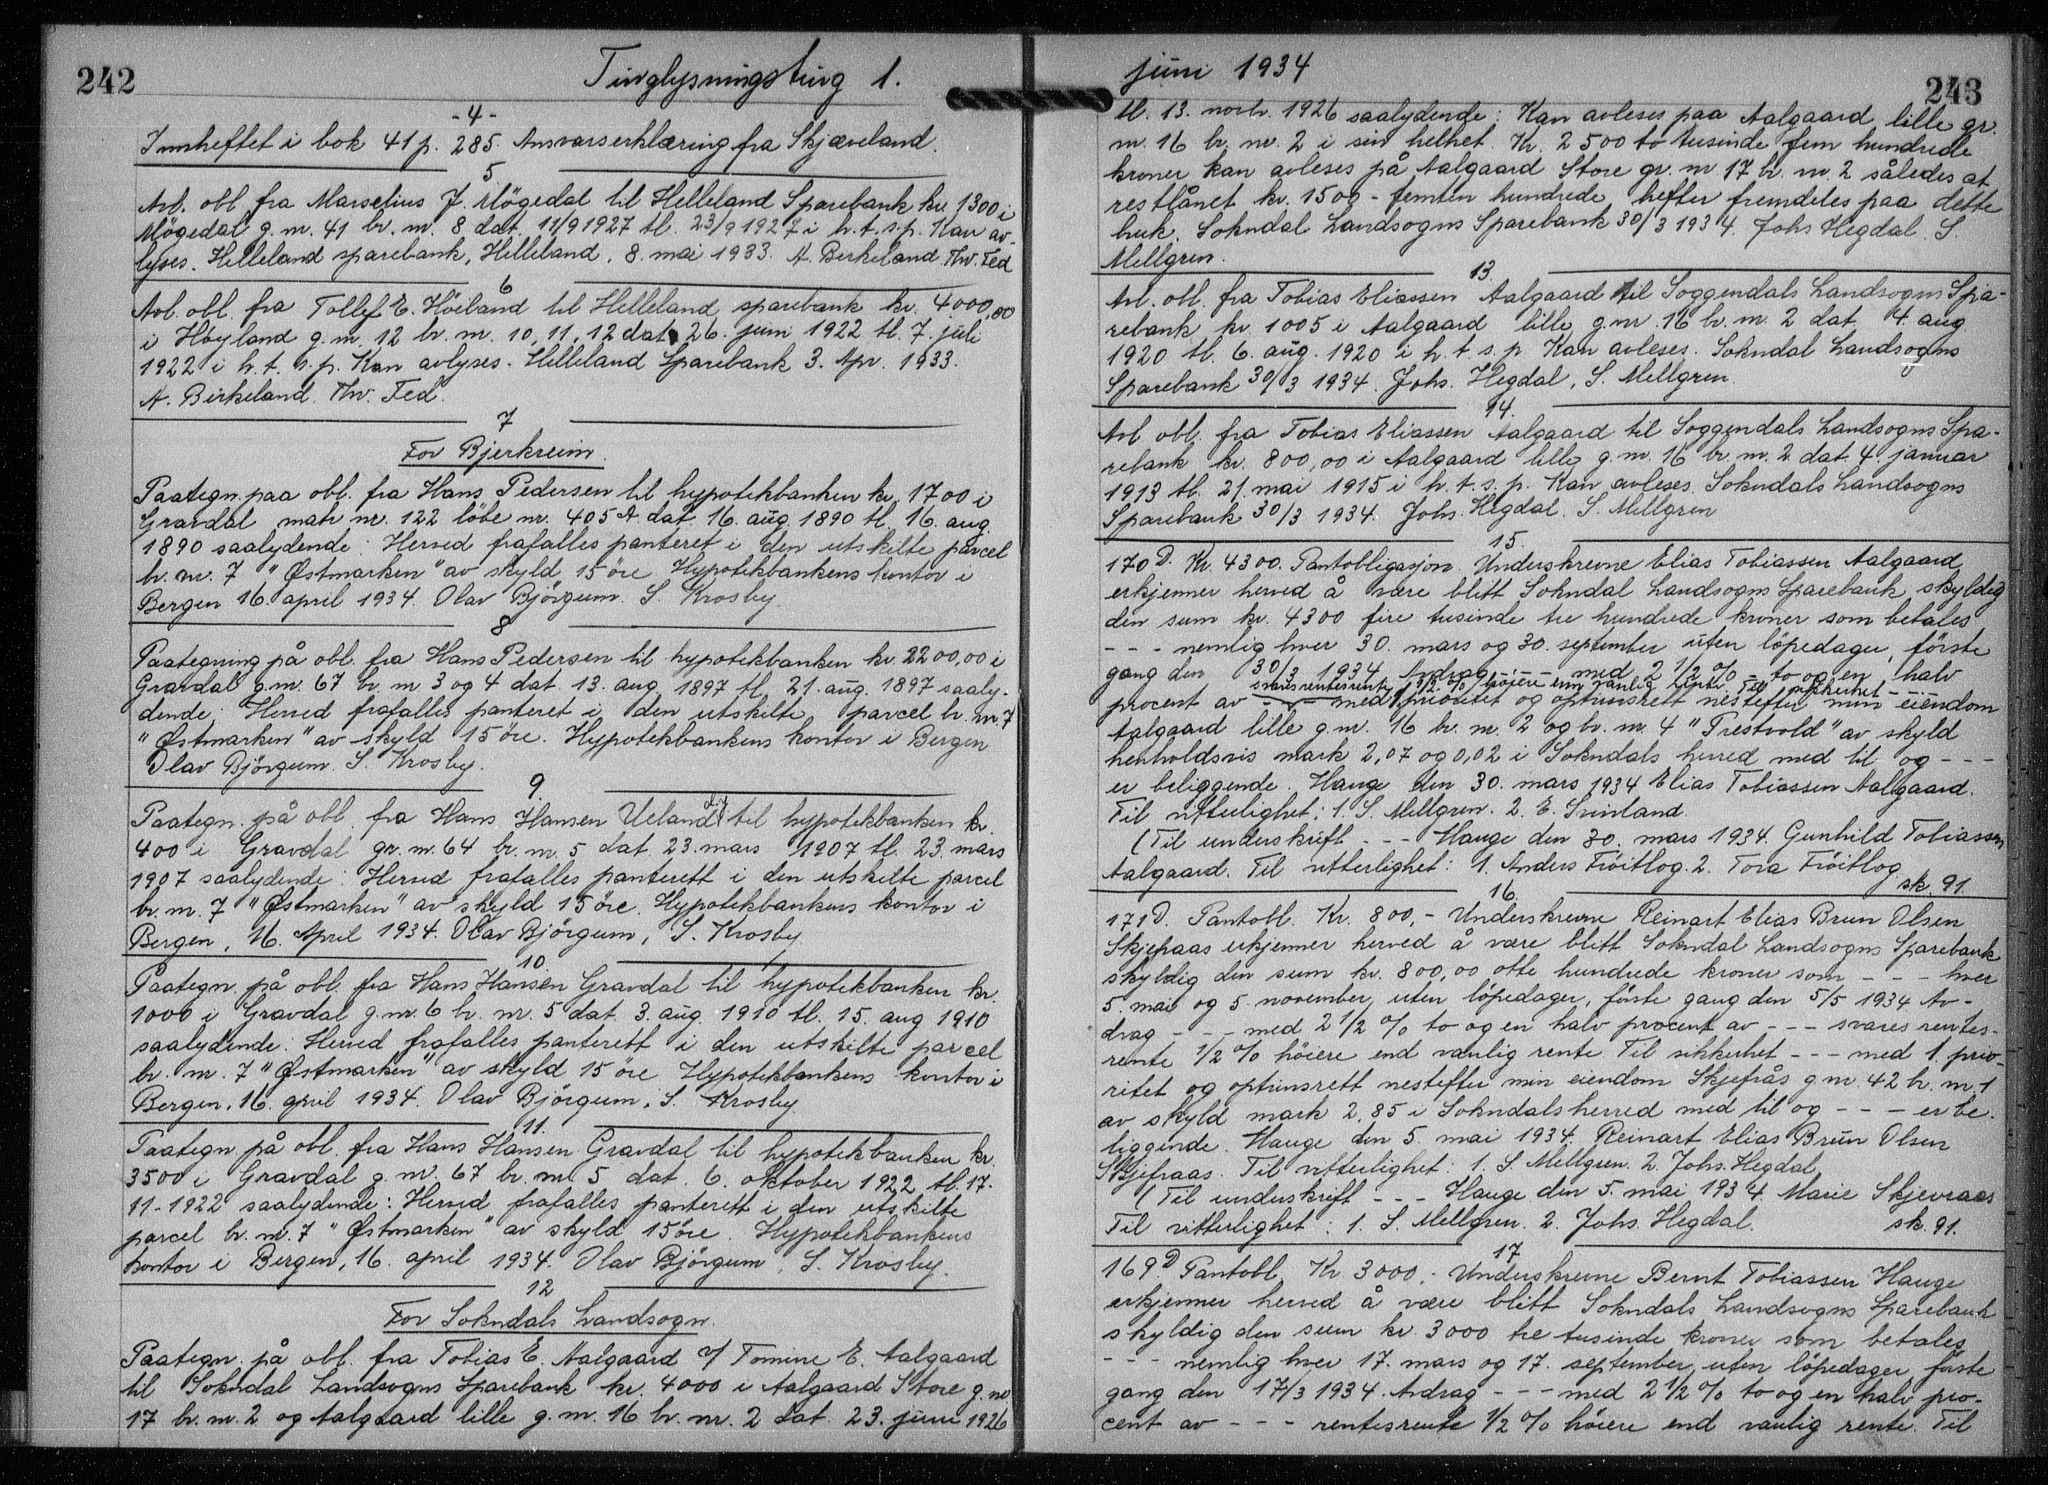 242
Tinglysningsting 1.
-4-
Innheftet i bok 41 p. 285. Ansvarserklæring fra Skjæveland.
5
Avl. obl. fra Marselius J. Mögedal til Helleland Sparebank kr. 1300 i
Mögedal g. nr. 41 br. nr. 8 dat. 11/9 1927 tl. 23/9 1927 i h. t. s. p. Kan av-
lyses. Helleland sparebank, Helleland, 8. mai 1933. A. Berkeland. Thv. Fed
6
Avl. obl. fra Tollef E. Höiland til Helleland sparebank kr. 4000,00
i Höyland g. nr. 12 br. nr. 10, 11, 12 dat. 26. juni 1922 tl. 7. juli
1922 i h. t. s. p. Kan avlyses. Helleland Sparebank 3. Apr. 1933.
A. Birkeland. Thv. Fed.
7
For Bjerkreim.
Paategn. paa obl. fra Hans Pedersen til hypotekbanken kr. 1700 i
Gravdal matr. nr. 122 löbe nr. 405 A dat. 16. aug. 1890 tl. 16. aug.
1890 saalydende: Herved frafalles panteret i den utskilte parcel
br. nr. 7 "Østmarken" av skyld 15 öre. Hypotekbankens kontor i
Bergen 16. april 1934. Olav Björgum. S. Krosby.
8
Paategning på obl. fra Hans Pedersen til hypotekbanken kr. 2200,00 i
Gravdal g. nr. 67 br. nr. 3 og 4 dat. 13. aug. 1897 tl. 21. aug. 1897 saaly-
dende: Herved frafalles panteret i den utskilte parcel br. nr. 7
"Østmarken" av skyld 15 öre. Hypotekbankens kontor i Bergen
Olav Björgum. S. Krosby.
9.
Paategn. på obl. fra Hans Hansen Ueland til hypotekbanken kr.
400 i Gravdal gr. nr. 64 br. nr. 5 dat. 23. mars 1907 tl. 23. mars
1907 saalydende: Herved frafalles panterett i den utskilte parcel
br. nr. 7 "Østmarken" av skyld 15 öre. Hypotekbankens kontor i
Bergen, 16. April 1934. Olav Björgum, S. Krosby.
10
Paategn. på obl. fra Hans Hansen Gravdal til hypotekbanken kr.
1000 i Gravdal g. nr. 6 br. nr. 5 dat. 3. aug. 1910 tl. 15. aug 1910
saalydende: Herved frafalles panterett i den utskilte parcel
br. nr. 7 "Østmarken" av skyld 15 öre Hypotekbankens kontor i
Bergen, 16. april 1934. Olav Björgum, S. Krosby
11.
Paategn. på obl. fra Hans Hansen Gravdal til hypotekbanken kr.
3500 i Gravdal g. nr. 67 br. nr. 5 dat. 6. oktober 1922 tl. 17-
11-1922 saalydende: Herved frafalles panterett i den utskilte
parcel br. nr. 7 "Østmarken" av skyld 15 öre. Hypotekbankens
kontor i Bergen, 16. april 1934. Olav Björgum, S. Krosby.
12
For Sokndals Landsogn.
Paategn. på obl. fra Tobias E. Aalgaard v/ Tomine E. Aalgaard
til Sokndal Landsogns Sparebank kr. 4000 i Aalgaard Store g. nr
17 br. nr. 2 og Aalgaard lille g. nr. 16 br. nr. 2 dat. 23. juni 1926
juni 1934
243
tl. 13. novbr. 1926 saalydende: Kan avleses paa Aalgaard lille gr.
nr. 16 br. nr. 2 i sin helhet. Kr. 2500 to tusinde fem hundrede
kroner kan avleses på Aalgaard Store gr. nr 17 br. nr. 2 således at
restlånet kr. 1500 - femten hundrede hefter fremdeles paa dette
bruk. Sokndal Landsogns Sparebank 30/3 1934. Johs Hegdal. S.
Mellgren.
13
Avl. obl. fra Tobias Eliassen Aalgaard til Soggendals Landsogns Spa-
rebank kr. 1005 i Aalgaard lille g. nr. 16 br. nr. 2 dat 4. aug.
1920 tl. 6. aug. 1920 i h. t. s. p. Kan avleses. Sokndal Landsogns
Sparebank 30/3 1934. Johs. Hegdal, S. Mellgren.
14.
Avl. obl. fra Tobias Eliassen Aalgaard til Soggendals Landsogns Spa-
rebank kr. 800,00 i Aalgaard lille g. nr. 16 br. nr. 2 dat. 4. januar
1913 tl. 21. mai 1915 i h. t. s. p. Kan avleses. Sokndals Landsogns
Sparebank 30/3 1934. Johs. Hegdal. S. Mellgren
15.
170 D. Kr. 4300. Pantobligasjon. Underskrevne Elias Tobiassen Aalgaard
erkjenner herved å være blitt Sokndal Landsogns Sparebank skyldig
den sum kr. 4300 fire tusinde tre hundrede kroner som betales
- - - nemlig hver 30. mars og 30. september uten löpedager, förste
gang den 30/3 1934 Avdrag - - - med 2 1/2 % - to og en halv
svares rentesrente 1/2 % höiere enn vanlig rente. Til sikkerhet - - -
procent av - - - med 1 prioritet og optrinsrett nestefter min eiendom
Aalgaard lille g. nr. 16 br. nr. 2 og br. nr. 4 "Prestvold" av skyld
henholdsvis mark 2,07 og 0,02 i Sokndals herred med til og - - -
er beliggende. Hauge den 30. mars 1934 Elias Tobiassen Aalgaard.
Til vitterlighet: 1. S. Mellgren. 2. E. Svinland.
(Til underskrift - - - Hauge den 30. mars 1934. Gunhild Tobiassen
Aalgaard. Til vitterlighet: 1. Anders Fröitlog. 2. Tora Fröitlog
sk. 91.
16
171 D. Pantobl. Kr. 800,- Underskrevne Reinart Elias Brun Olsen
Skjefraas erkjenner herved å være blitt Sokndal Landsogns Sparebank
skyldig den sum kr. 800,00 otte hundrede kroner som - - - hver
5. mai og 5. november, uten löpedager, förste gang den 5/5 1934 Av-
drag - - - med 2 1/2 % to og en halv procent av - - - svares rentes-
rente 1/2 % höiere end vanlig rente Til sikkerhet - - - med 1. prio-
ritet og optrinsrett nestefter min eiendom Skjefrås g. nr. 42 br. nr. 1
av skyld mark 2,85 i Sokndals herred med til og - - - er be-
liggende. Hauge den 5. mai 1934. Reinart Elias Brun Olsen
Skjefraas. Til vitterlighet: 1. S. Mellgren. 2. Johs. Hegdal,
(Til underskrift - - - Hauge den 5. mai 1934. Marie Skjevraas
Til vitterlighet: 1. S. Mellgren. 2. Johs. Hegdal. sk. 91.
17
169 D Pantobl. Kr. 3000,- Underskrevne Bernt Tobiassen Hauge
erkjenner herved å være blitt Sokndals Landsogns Sparebank
skyldig den sum kr. 3000 tre tusinde kroner som betales
- - - nemlig hver 17. mars og 17. september, uten löpedager förste
gang den 17/3 1934. Avdrag - - - med 2 1/2 % to og en halv pro-
cent av - - - rentesrente 1/2 % höiere end vanlig rente. Til